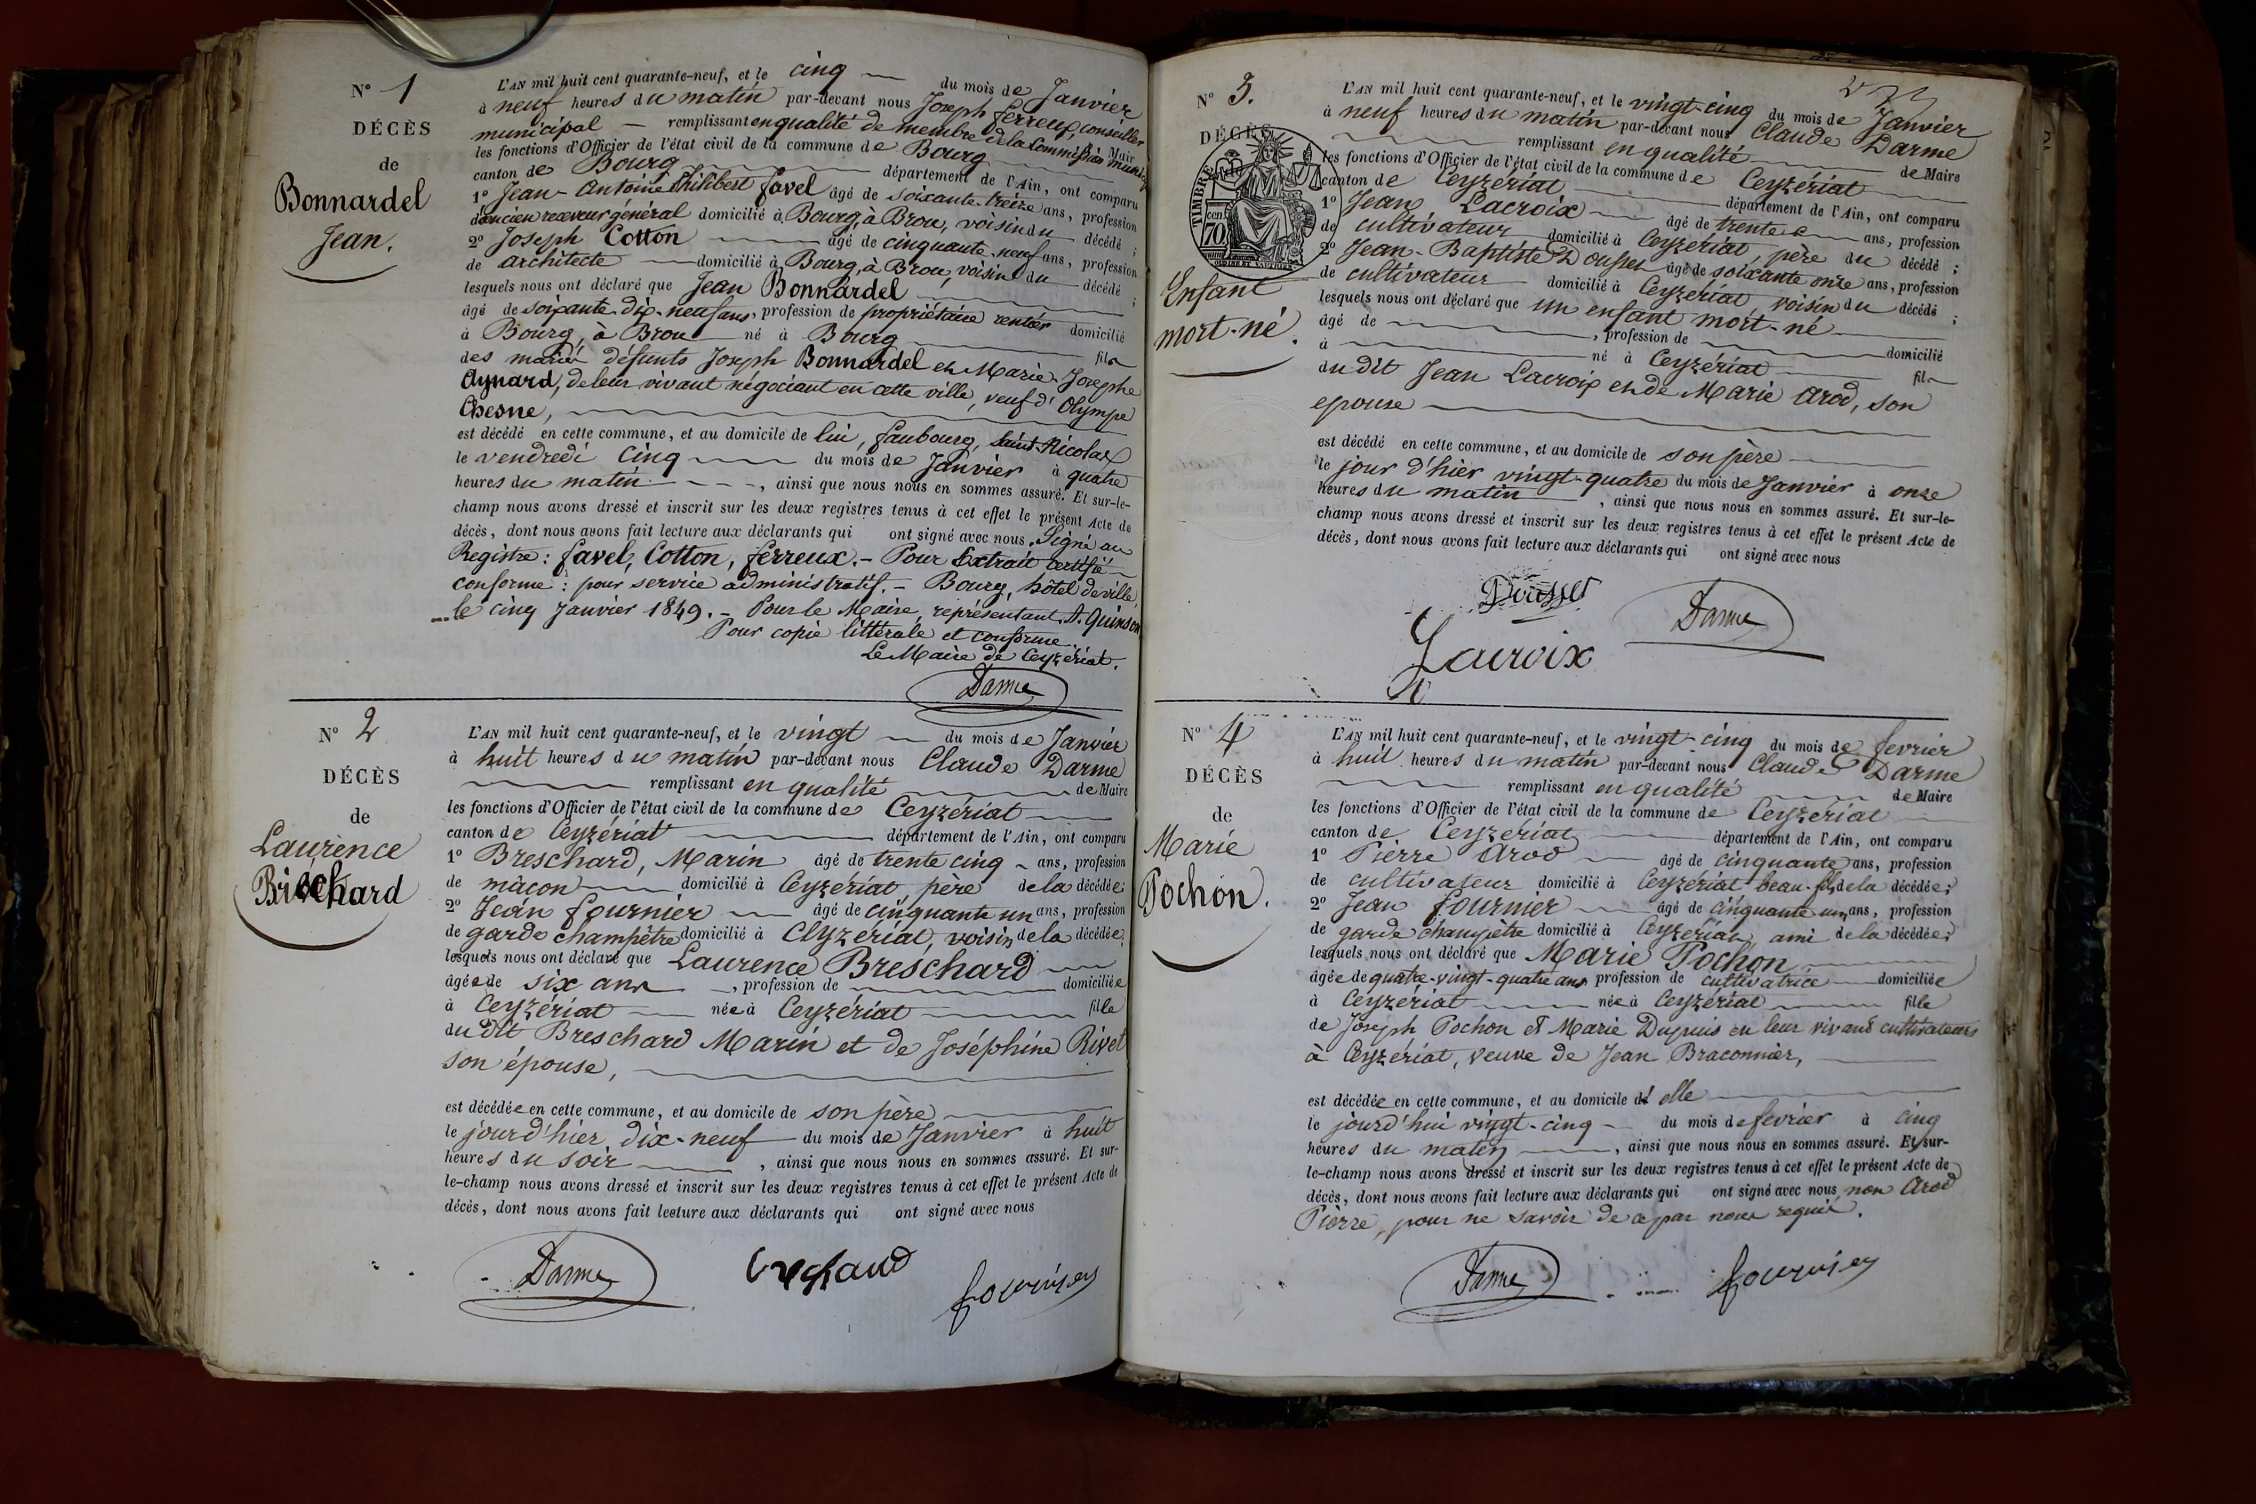 N° 1
DÉCÈS
de
Bonnardel
Jean.
L'AN mil huit cent quarante-neuf, et le cinq du mois de Janvier
à neuf heures du matin par-devant nous Joseph ferreux, conseiller
municipal remplissant en qualité de membre de la Commission Municip
les fonctions d'Officier de l'état civil de la commune de Bourg Maire
canton de Bourg département de l'Ain, ont comparu
1° Jean-Antoine Philibert favel âgé de soixante-treize ans, profession
d'ancien receveur général domicilié à Bourg, à Brou, voisin du décédé ;
2° Joseph Cotton âgé de cinquante-neuf ans, profession
de architecte domicilié à Bourg, à Brou, voisin du décédé ;
lesquels nous ont déclaré que Jean Bonnardel
âgé de soixante-dix-neuf ans, profession de propriétaire rentier domicilié
à Bourg, à Brou né à Bourg fils
des mariés défunts Joseph Bonnardel et Marie-Josephe
Aynard, de leur vivant négociant en cette ville, veuf d'Olympe
Chesne,
est décédé en cette commune, et au domicile de lui, faubourg Saint-Nicolas
le vendredi cinq du mois de Janvier à quatre
heures du matin, ainsi que nous nous en sommes assuré. Et sur-le-
champ nous avons dressé et inscrit sur les deux registres tenus à cet effet le présent Acte de
décès, dont nous avons fait lecture aux déclarants qui ont signé avec nous. Signé au
Registre : favel, Cotton, ferreux. - Pour Extrait certifié
conforme : pour service administratif. - Bourg, hôtel de ville,
le cinq Janvier 1849. - Pour le Maire, représentant, A. Quinson
Pour copie littérale et conforme
Le Maire de Ceyzériat.
Darme
N° 2
DÉCÈS
de
Laurence
Breschard
L'AN mil huit cent quarante-neuf, et le vingt du mois de Janvier
à huit heures du matin par-devant nous Claude Darme
remplissant en qualité de Maire
les fonctions d'Officier de l'état civil de la commune de Ceyzériat
canton de Ceyzériat département de l'Ain, ont comparu
1° Breschard, Marin âgé de trente cinq ans, profession
de mâcon domicilié à Ceyzériat, père de la décédée;
2° Jean fournier âgé de cinquante un ans, profession
de garde champêtre domicilié à Ceyzeriat, voisin de la décédée;
lesquels nous ont déclaré que Laurence Breschard
âgée de six ans, profession de domiciliée
à Ceyzériat née à Ceyzériat fille
du dit Breschard Marin et de Joséphine Rivet
son épouse,
est décédée en cette commune, et au domicile de son père
le jour d'hier dix-neuf du mois de Janvier à huit
heures du soir, ainsi que nous nous en sommes assuré. Et sur-
le-champ nous avons dressé et inscrit sur les deux registres tenus à cet effet le présent Acte de
décès, dont nous avons fait lecture aux déclarants qui ont signé avec nous
Darme
fournier
N° 3.
DÉCÈS
TIMBRE
cen
70
Enfant
mort-né.
L'AN mil huit cent quarante-neuf, et le vingt-cinq du mois de Janvier
à neuf heures du matin par-devant nous Claude Darme
remplissant en qualité de Maire
les fonctions d'Officier de l'état civil de la commune de Ceyzériat
canton de Ceyzériat département de l'Ain, ont comparu
1° Jean Lacroix âgé de trente ans, profession
de cultivateur domicilié à Ceyzériat, père du décédé ;
2° Jean-Baptiste Dousset âgé de soixante onze ans, profession
de cultivateur domicilié à Ceyzériat, voisin du décédé ;
lesquels nous ont déclaré que un enfant mort-né
âgé de, profession de domicilié
à né à Ceyzériat fils
du dit Jean Lacroix et de Marie Arod, son
epouse
est décédé en cette commune, et au domicile de son père
le jour d'hier vingt-quatre du mois de Janvier à onze
heures du matin, ainsi que nous nous en sommes assuré. Et sur-le-
champ nous avons dressé et inscrit sur les deux registres tenus à cet effet le présent Acte de
décès, dont nous avons fait lecture aux déclarants qui ont signé avec nous
Dousset
Darme
Lacroix
N° 4
DÉCÈS
de
Marie
Pochon.
L'AN mil huit cent quarante-neuf, et le vingt-cinq du mois de fevrier
à huit heures du matin par-devant nous Claude Darme
remplissant en qualité de Maire
les fonctions d'Officier de l'état civil de la commune de Ceyzériat
canton de Ceyzériat département de l'Ain, ont comparu
1° Pierre Arod âgé de cinquante ans, profession
de cultivateur domicilié à Ceyzériat beau-fils de la décédée;
2° Jean fournier âgé de cinquante un ans, profession
de garde champêtre domicilié à Ceyzériat, ami de la décédée;
lesquels nous ont déclaré que Marie Pochon
âgée de quatre-vingt-quatre ans profession de cultivatrice domiciliée
à Ceyzériat née à Ceyzériat fille
de Joseph Pochon et Marie Dupuis en leur vivant cultivateurs
à Ceyzériat, veuve de Jean Braconnier,
est décédée en cette commune, et au domicile d'elle
le jourd'hui vingt-cinq du mois de fevrier à cinq
heures du matin, ainsi que nous nous en sommes assuré. Et sur-
le-champ nous avons dressé et inscrit sur les deux registres tenus à cet effet le présent Acte de
décès, dont nous avons fait lecture aux déclarants qui ont signé avec nous, non Arod
Pierre, pour ne savoir de ce par nous requis.
Darme
fournier